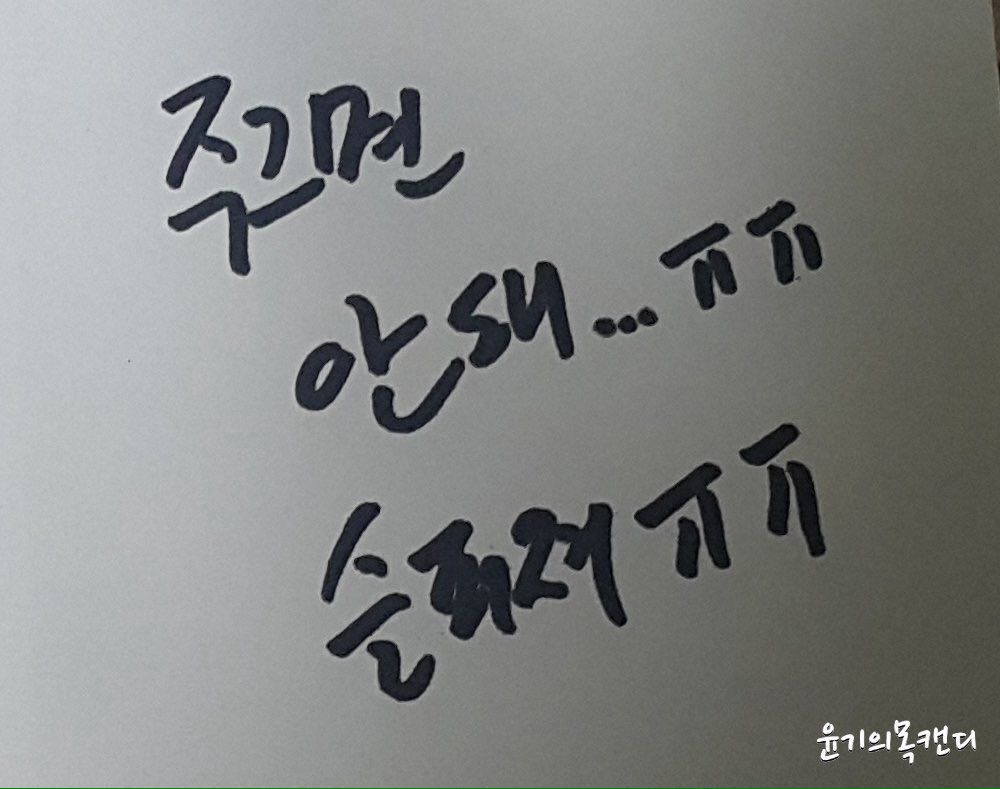 주그면
안돼...ㅠㅠ
슬퍼려ㅠㅠ
윤기의목캔디